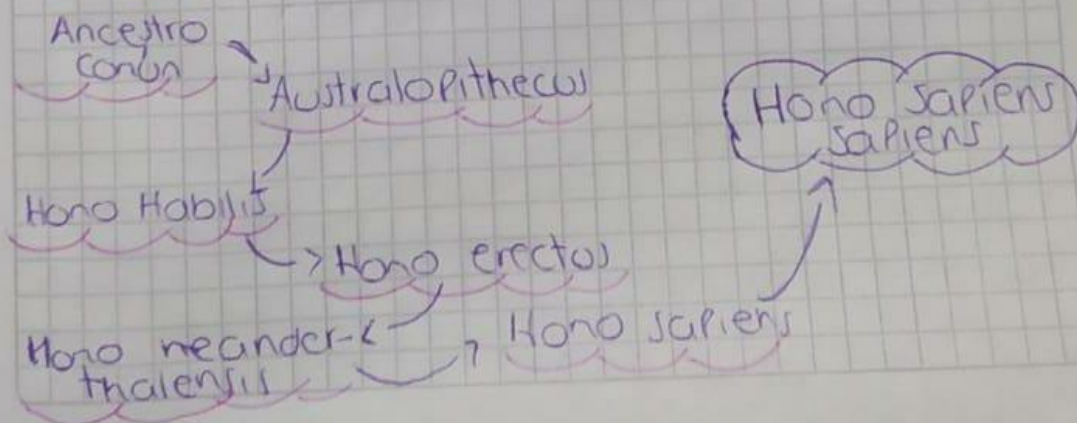 Ancestro
común
Australopithecus
Homo Habilis
Homo erectus
Homo neander-
thalensis
Homo sapiens
Homo sapiens
sapiens